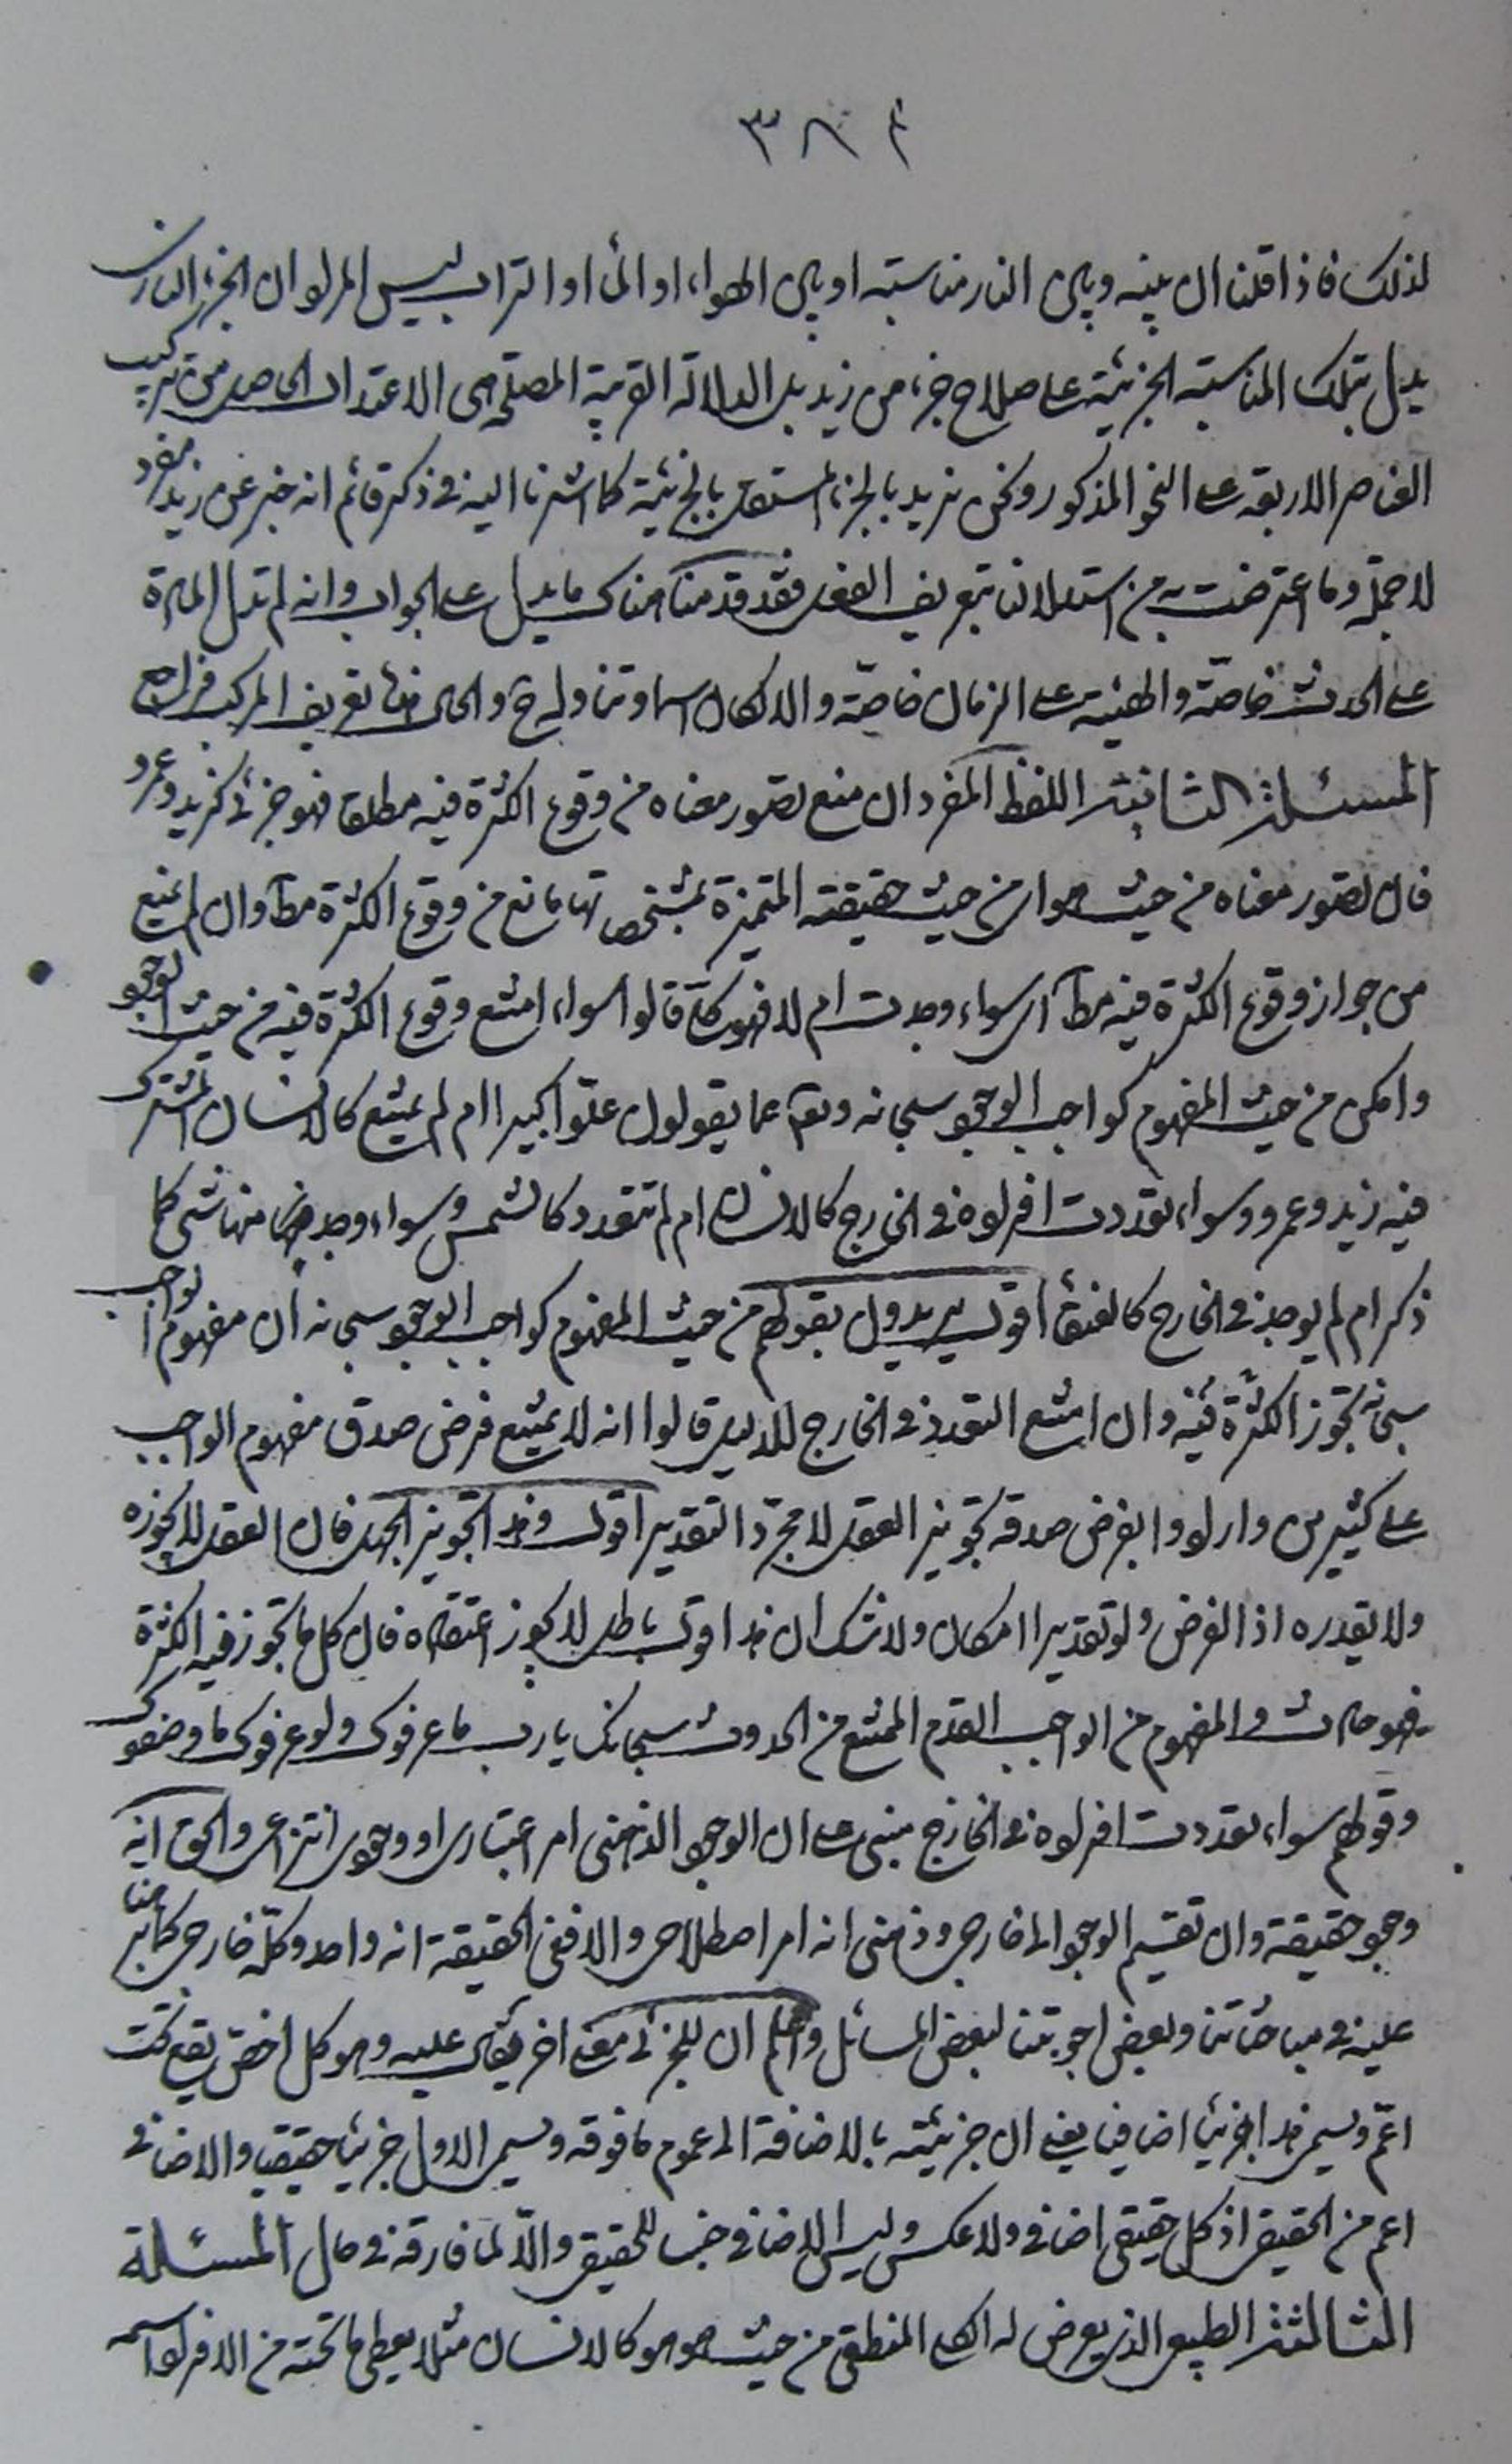 ٣٨٤
لذلك فاذا قلنا ان بينه وبين النار مناسبته او بين الهواء او الماء او التراب ليس المراد ان الجزء النارى
يدل بتلك المناسبته الجزئيّة على صلاح جزء من زيد بل الدلالة القريبة المصلحة هى الاعتدال الحاصل من تركيب
العناصر الاربعة على النحو المذكور ونحن نريد بالجزء المستقل بالجزئيّة كما اشرنا اليه فى ذكر قائم انه خبر عن زيد مفرد
لا جملة وما اعترضت به من استدلالنا بتعريف الفعل فقد قدمنا هناك ما يدل على الجواب وانه لم تدل المادة
على الحدث خاصّة والهيئة على الزمان خاصّة والا لكان اسما وتناوله ح والحال هذه تعريف المركب فراجع
المسئلة الثانية اللفظ المفرد ان منع تصور معناه من وقوع الكثرة فيه مطلقا فهو جزئى كزيد وعمرو
فان تصور معناه من حيث هو اى من حيث حقيقته المتميزة بمشخصاتها مانع من وقوع الكثرة مطآ وان لم يمنع
من جواز وقوع الكثرة فيه مطآ اى سواء وجدت ام لا فهو كلىّ قالوا سواء امتنع وقوع الكثرة فيه من حيث الوجود
وامكن من حيث المفهوم كواجب الوجود سبحانه وتعالى عما يقولون علوّا كبيرا ام لم يمتنع كالانسان المشترك
فيه زيد وعمرو وسواء تعددت افراده فى الخارج كالانسان ام لم تتعدد كالشمس وسواء وجد منها شئ كما
ذكر ام لم يوجد فى الخارج كالعنقاء اقول يريدون بقولهم من حيث المفهوم كواجب الوجود سبحانه ان مفهوم الواجب
سبحانه تجوز الكثرة فيه وان امتنع التعدد فى الخارج للدليل قالوا انه لا يمتنع فرض صدق مفهوم الواجب
على كثيرين وارادوا بفرض صدقه تجويز العقل لا مجرّد التقدير اقول وهذا التجويز الجهل فان العقل لا يجوزه
ولا يقدره اذ الفرض ولو تقديرا امكان ولا شك ان هذا قول باطل لا يجوز اعتقاده فان كل ما تجوز فيه الكثرة
فهو حادث والمفهوم من الواجب القدم الممتنع من الحدوث سبحانك يا رب ما عرفوك ولو عرفوك ما وصفوك
وقولهم سواء تعددت افراده فى الخارج مبنى على ان الوجود الذهنى امر اعتبارى او وجودى انتزاعى والحق انه
وجود حقيقة وان تقسيم الوجود الى خارجى وذهنى انه امر اصطلاحى والا ففى الحقيقة انه واحد وكلّه خارجى كما برهنا
عليه فى مباحثاتنا وبعض اجوبتنا لبعض المسائل واعلم ان للجزئى معنى اخر يقال عليه وهو كل اخصّ يقع تحت
اعمّ ويسمى هذا جزئيا اضافيا يعنى ان جزئيته بالاضافة الى عموم ما فوقه ويسمى الاول جزئيا حقيقيا والاضافى
اعم من الحقيقى اذ كل حقيقى اضافى ولا عكس وليس الاضافى جنسا للحقيقى والّا لما فارقه فى حال المسئلة
الثالثة الطبيعى الذى يعرض له الكلى المنطقى من حيث هو هو كالانسان مثلا يعطى ما تحته من الافراد اسمه